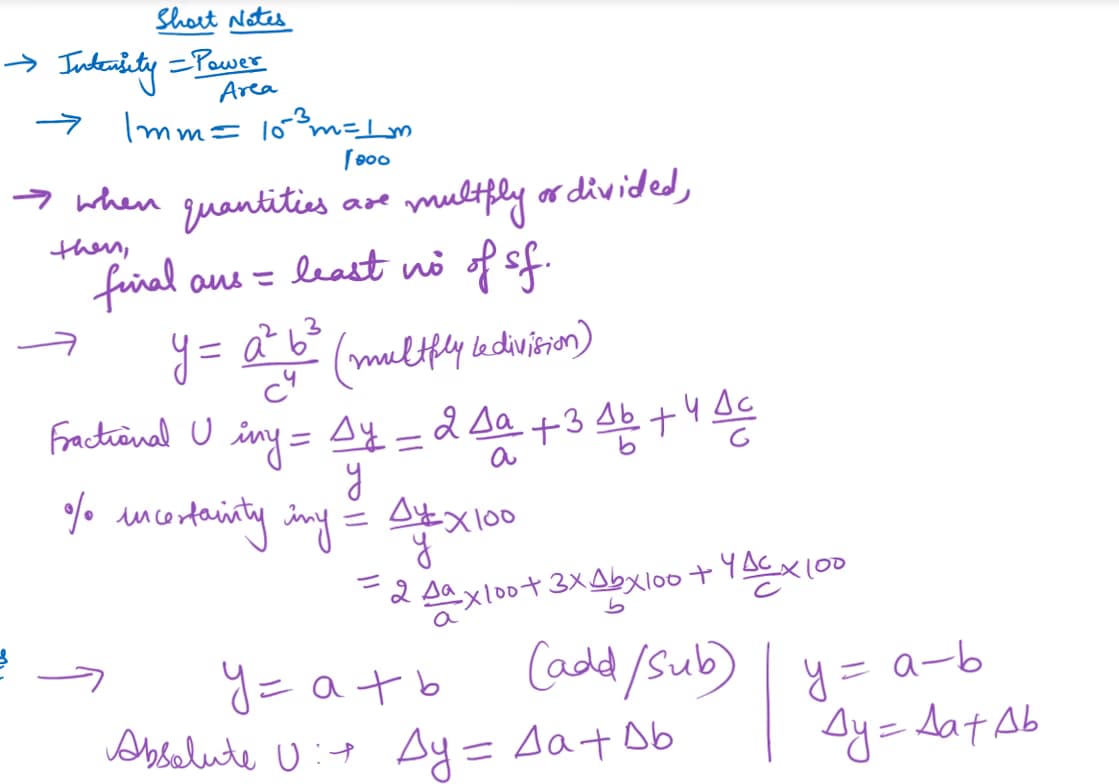 Short Notes
→ Intensity = Power/Area
→ 1mm = 10⁻³m = 1/1000 m
→ when quantities are multply or divided,
then,
final ans = least no of sf.
→ y = a²b³/c⁴ (multply & division)
Fractional U in y = Δy/y = 2 Δa/a + 3 Δb/b + 4 Δc/c
% uncertainty in y = Δy/y × 100
= 2 Δa/a × 100 + 3 × Δb/b × 100 + 4 Δc/c × 100
→ y = a + b (add/sub) | y = a - b
Absolute U :→ Δy = Δa + Δb | Δy = Δa + Δb